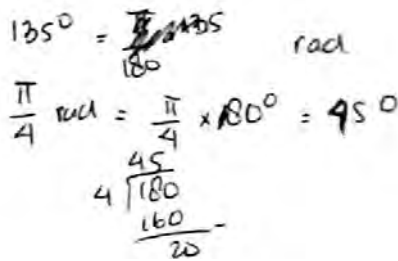 135° = π/180 rad
π/4 rad = π/4 × 180° = 45°
45
4 √180
160 -
20